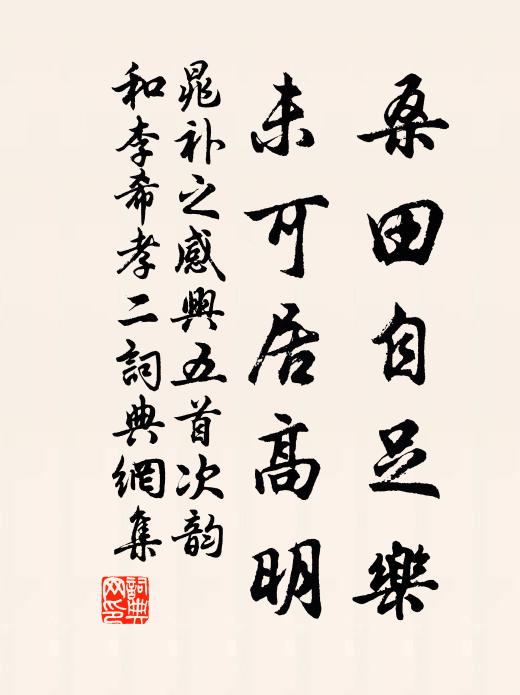 桑田自足樂
未可居高明
晁补之感興五首次韵
和李希孝二詞典網集
詞典
网印